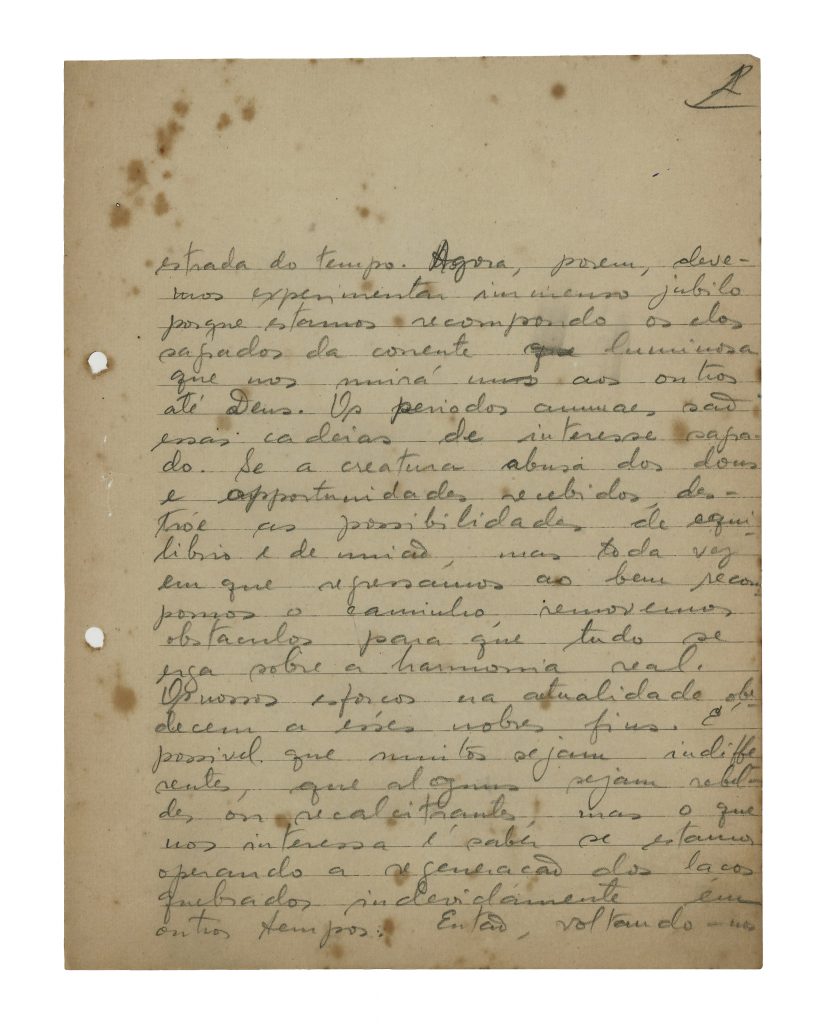 estrada do tempo. Agora, porem, deve-
mos experimentar immenso jubilo
porque estamos recompondo os elos
sagrados da corrente que luminosa
que nos unirá uns aos outros
até Deus. Os periodos annuaes, saõ
essas cadeias de interesse sagra-
do. Se a creatura abusa dos dons
e opportunidades recebidos, des-
tróe as possibilidades de equi-
librio e de uniaõ, mas toda vez
em que regressámos ao bem recom-
pomos o caminho, removemos
obstaculos para que tudo se
erga sobre a harmonia real.
Os nossos esforços na actualidade obe-
decem a esses nobres fins. É
possivel que muitos sejam indiffe-
rentes, que alguns sejam rebel-
des ou recalcitrantes, mas o que
nos interessa é saber se estamos
operando a regeneraçaõ dos laços
quebrados indevidamente em
outros tempos. Entaõ, voltando-nos